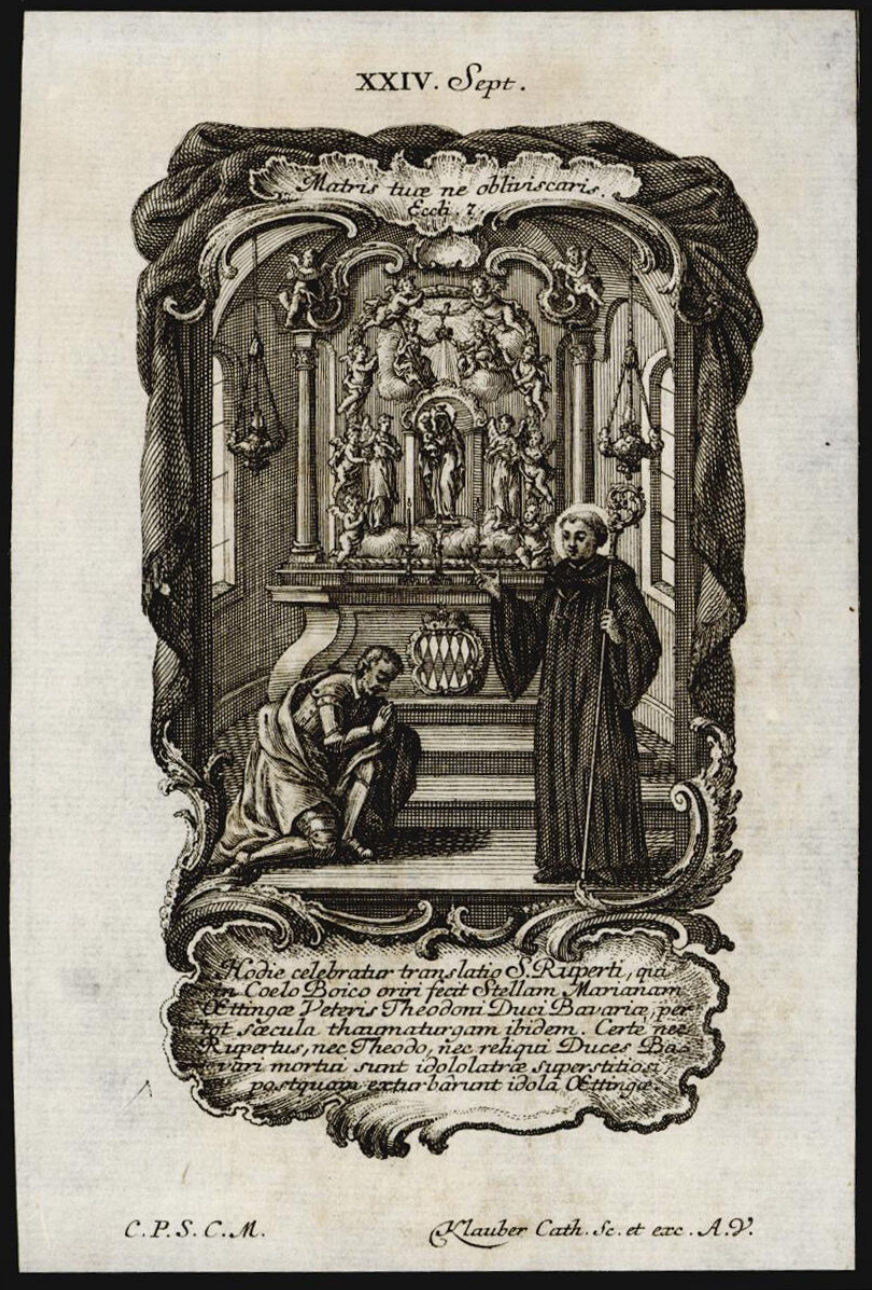 XXIV. Sept.
Matris tuæ ne obliviscaris.
Eccli. 7.
Hodie celebratur translatio S. Ruperti, qui
in Coelo Boico oriri fecit Stellam Marianam
Œttingæ Veteris Theodoni Duci Bavariæ, per
tot sæcula thaumaturgam ibidem. Certè nec
Rupertus, nec Theodo, nec reliqui Duces Ba-
vari mortui sunt idololatriæ superstitiosi,
postquam exturbârunt idola Œttingæ.
C. P. S. C. M.
Klauber Cath. Sc. et exc. A. V.